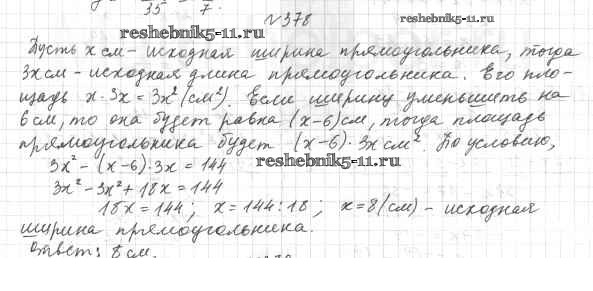 №378
reshebnik5-11.ru
reshebnik5-11.ru
Пусть x см - исходная ширина прямоугольника, тогда
3x см - исходная длина прямоугольника. Его пло-
щадь x·3x = 3x² (см²). Если ширину уменьшить на
6 см, то она будет равна (x-6) см, тогда площадь
прямоугольника будет (x-6)·3x см². По условию,
3x² - (x-6)·3x = 144
reshebnik5-11.ru
3x² - 3x² + 18x = 144
18x = 144; x = 144:18; x = 8 (см) - исходная
ширина прямоугольника.
Ответ: 8 см.